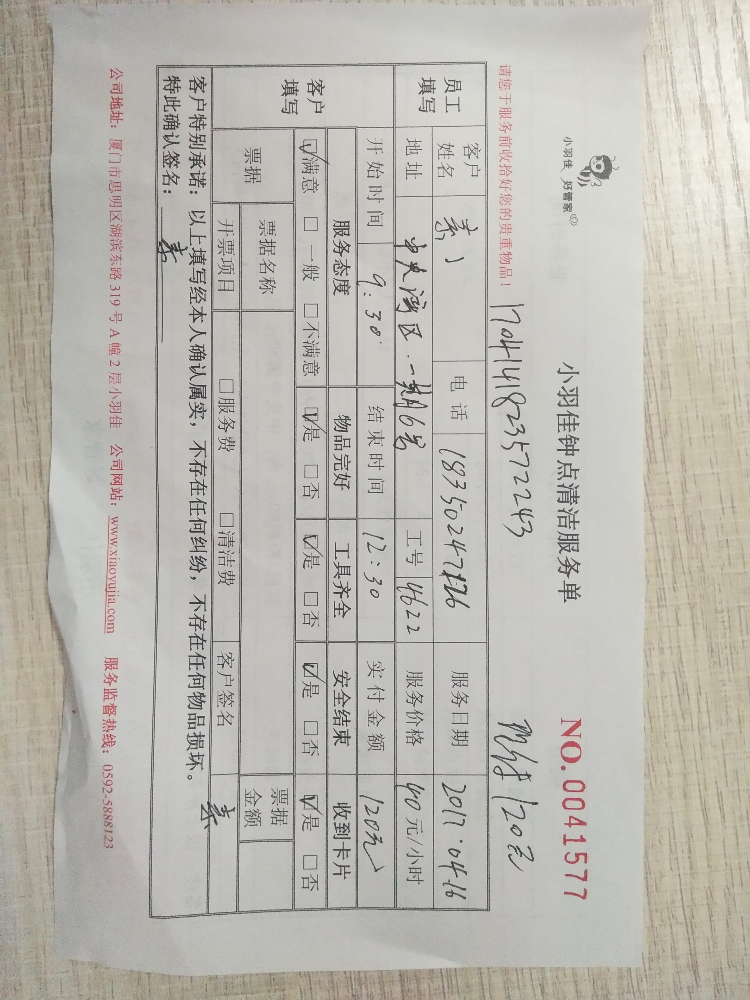 小羽佳 好管家
小羽佳钟点清洁服务单
NO.0041577
请您于服务前收拾好您的贵重物品！
1704141823572243
120元
员工填写
客户姓名 电话 18350247726 服务日期 2017.04.16
地址 中央湾区 一期6号 工号 4622 服务价格 40元/小时
客户填写
开始时间 9:30 结束时间 12:30 实付金额 120元
服务态度 物品完好 工具齐全 安全结束 收到卡片
☑满意 □一般 □不满意 ☑是 □否 ☑是 □否 ☑是 □否 ☑是 □否
票据 票据名称 票据金额
开票项目 □服务费 □清洁费 客户签名
客户特别承诺：以上填写经本人确认属实，不存在任何纠纷，不存在任何物品损坏。
特此确认签名：
公司地址：厦门市思明区湖滨东路319号A幢2层小羽佳 公司网站：www.xiaoyujia.com 服务监督热线：0592-5888123